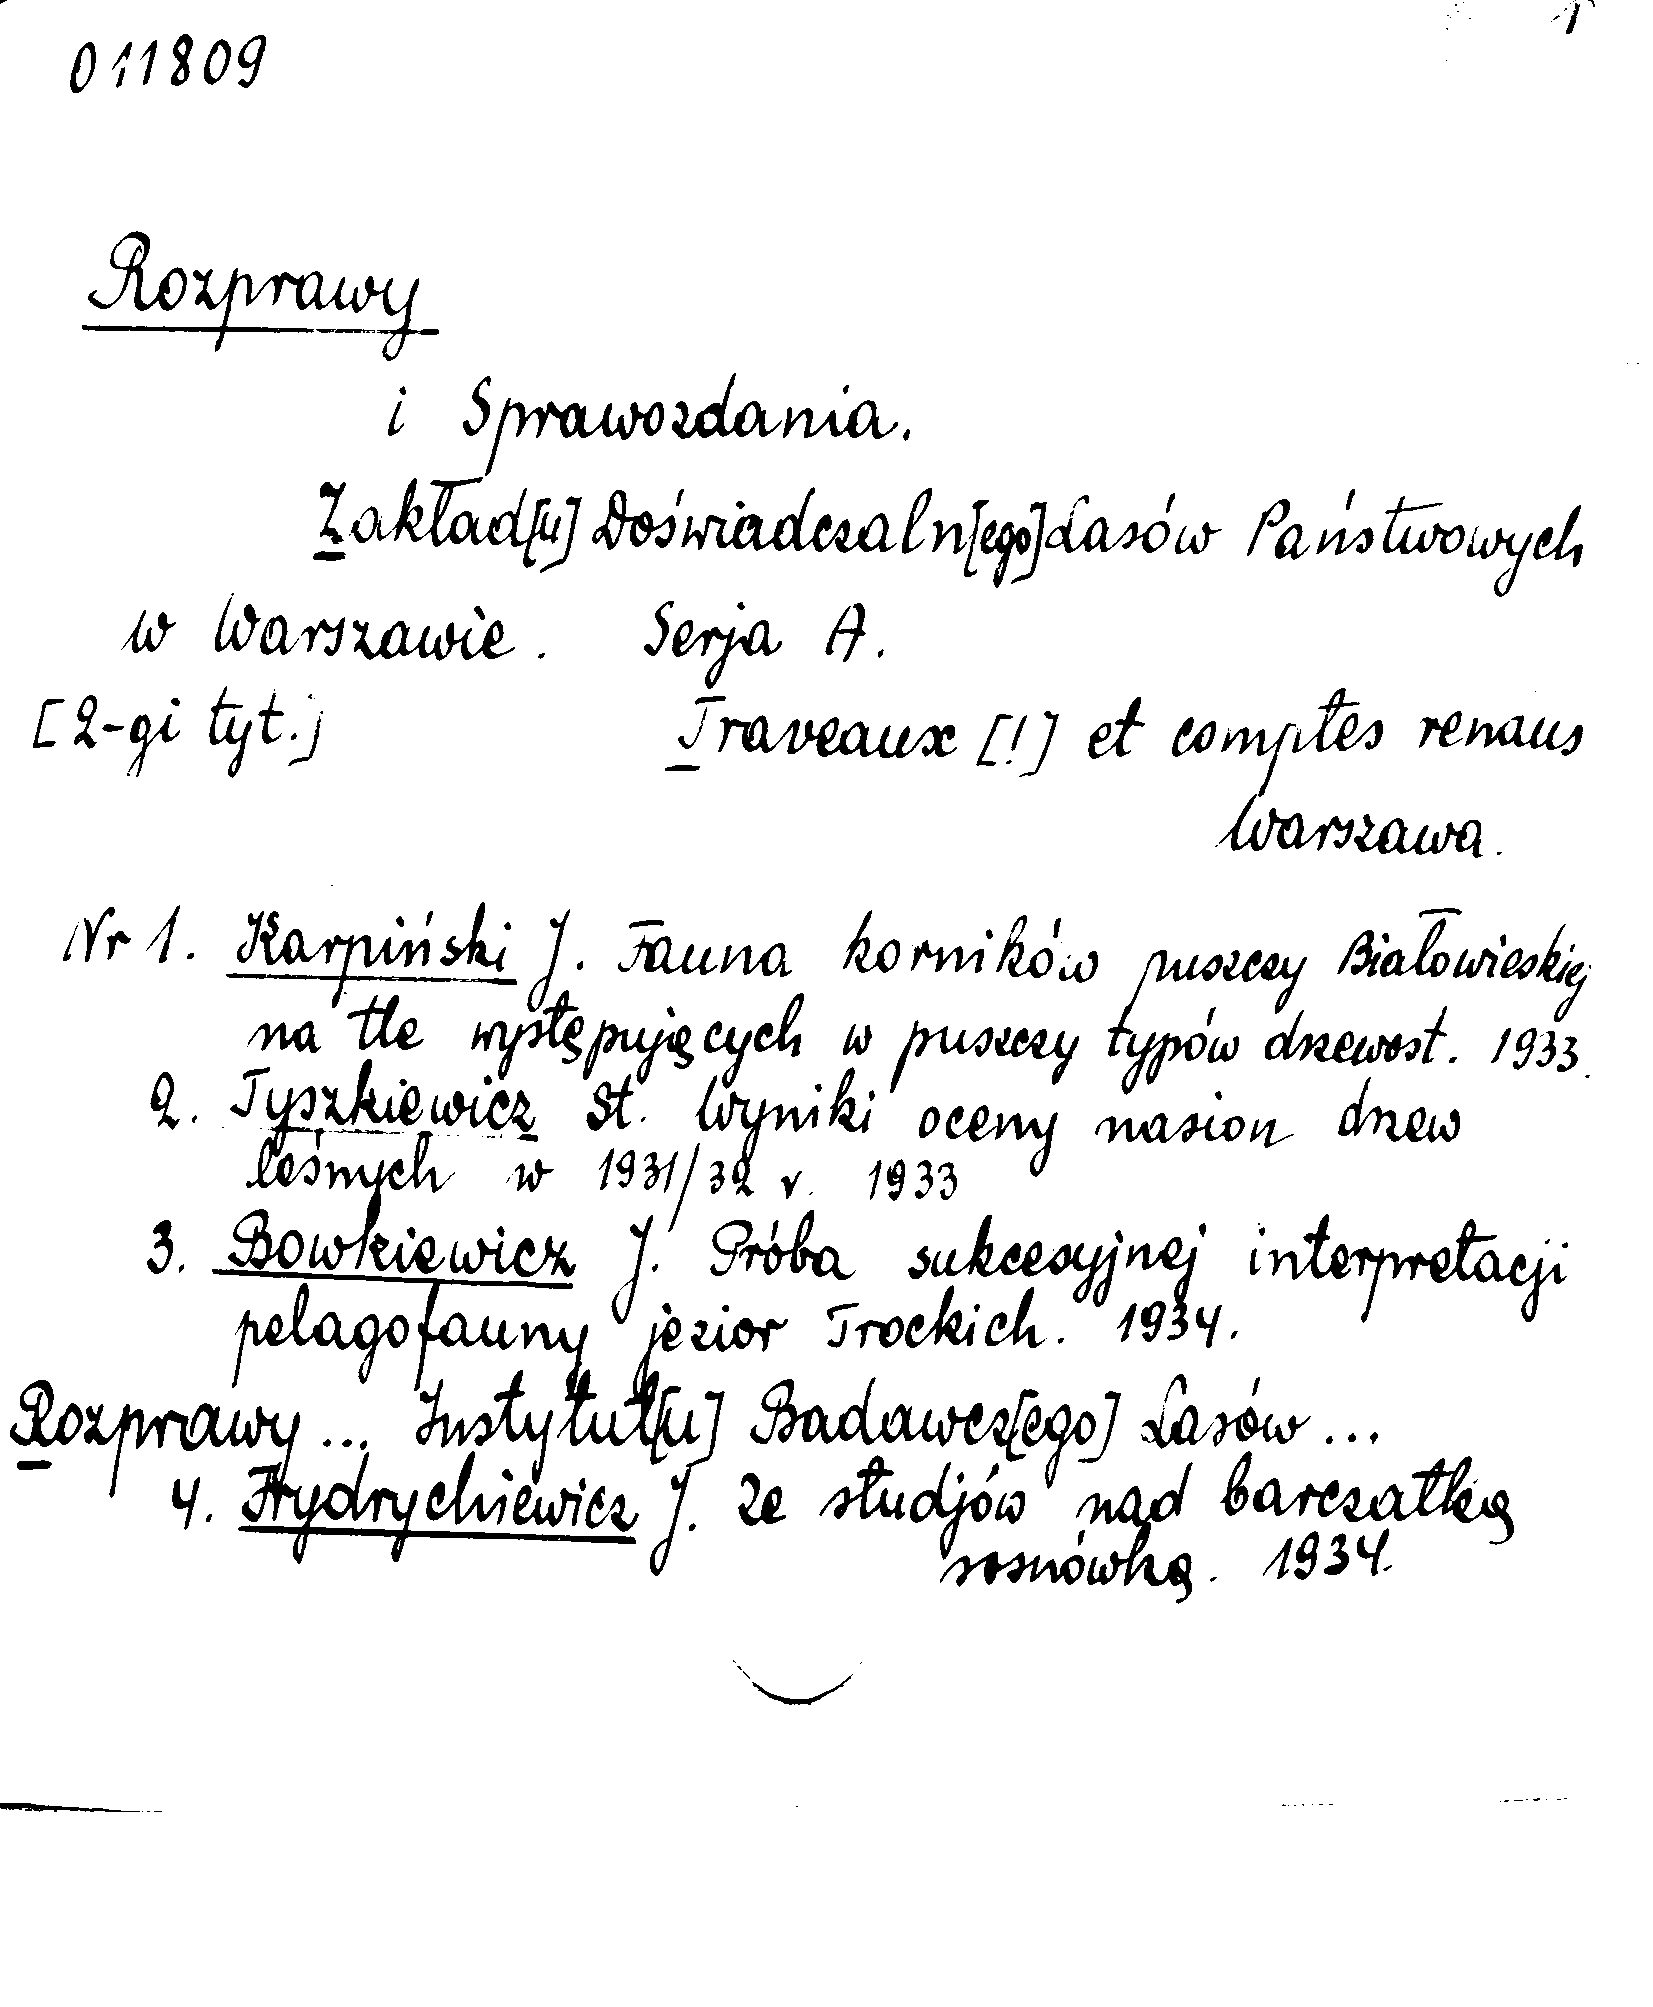 1
011809
Rozprawy
i Sprawozdania.
Zakład[u] Doświadczaln[ego] Lasów Państwowych
w Warszawie. Serja A.
[2-gi tyt.] Traveaux [!] et comptes renaus
Warszawa.
Nr 1. Karpiński J. Fauna korników puszczy Białowieskiej
na tle występujących w puszczy typów drzewost. 1933.
2. Tyszkiewicz St. Wyniki oceny nasion drzew
leśnych w 1931/32 r. 1933
3. Bowkiewicz J. Próba sukcesyjnej interpretacji
pelagofauny jezior Trockich. 1934.
Rozprawy ... Instytut[u] Badawcz[ego] Lasów ...
4. Hydrychiewicz J. Ze studjów nad barczatką
sosnówką. 1934.